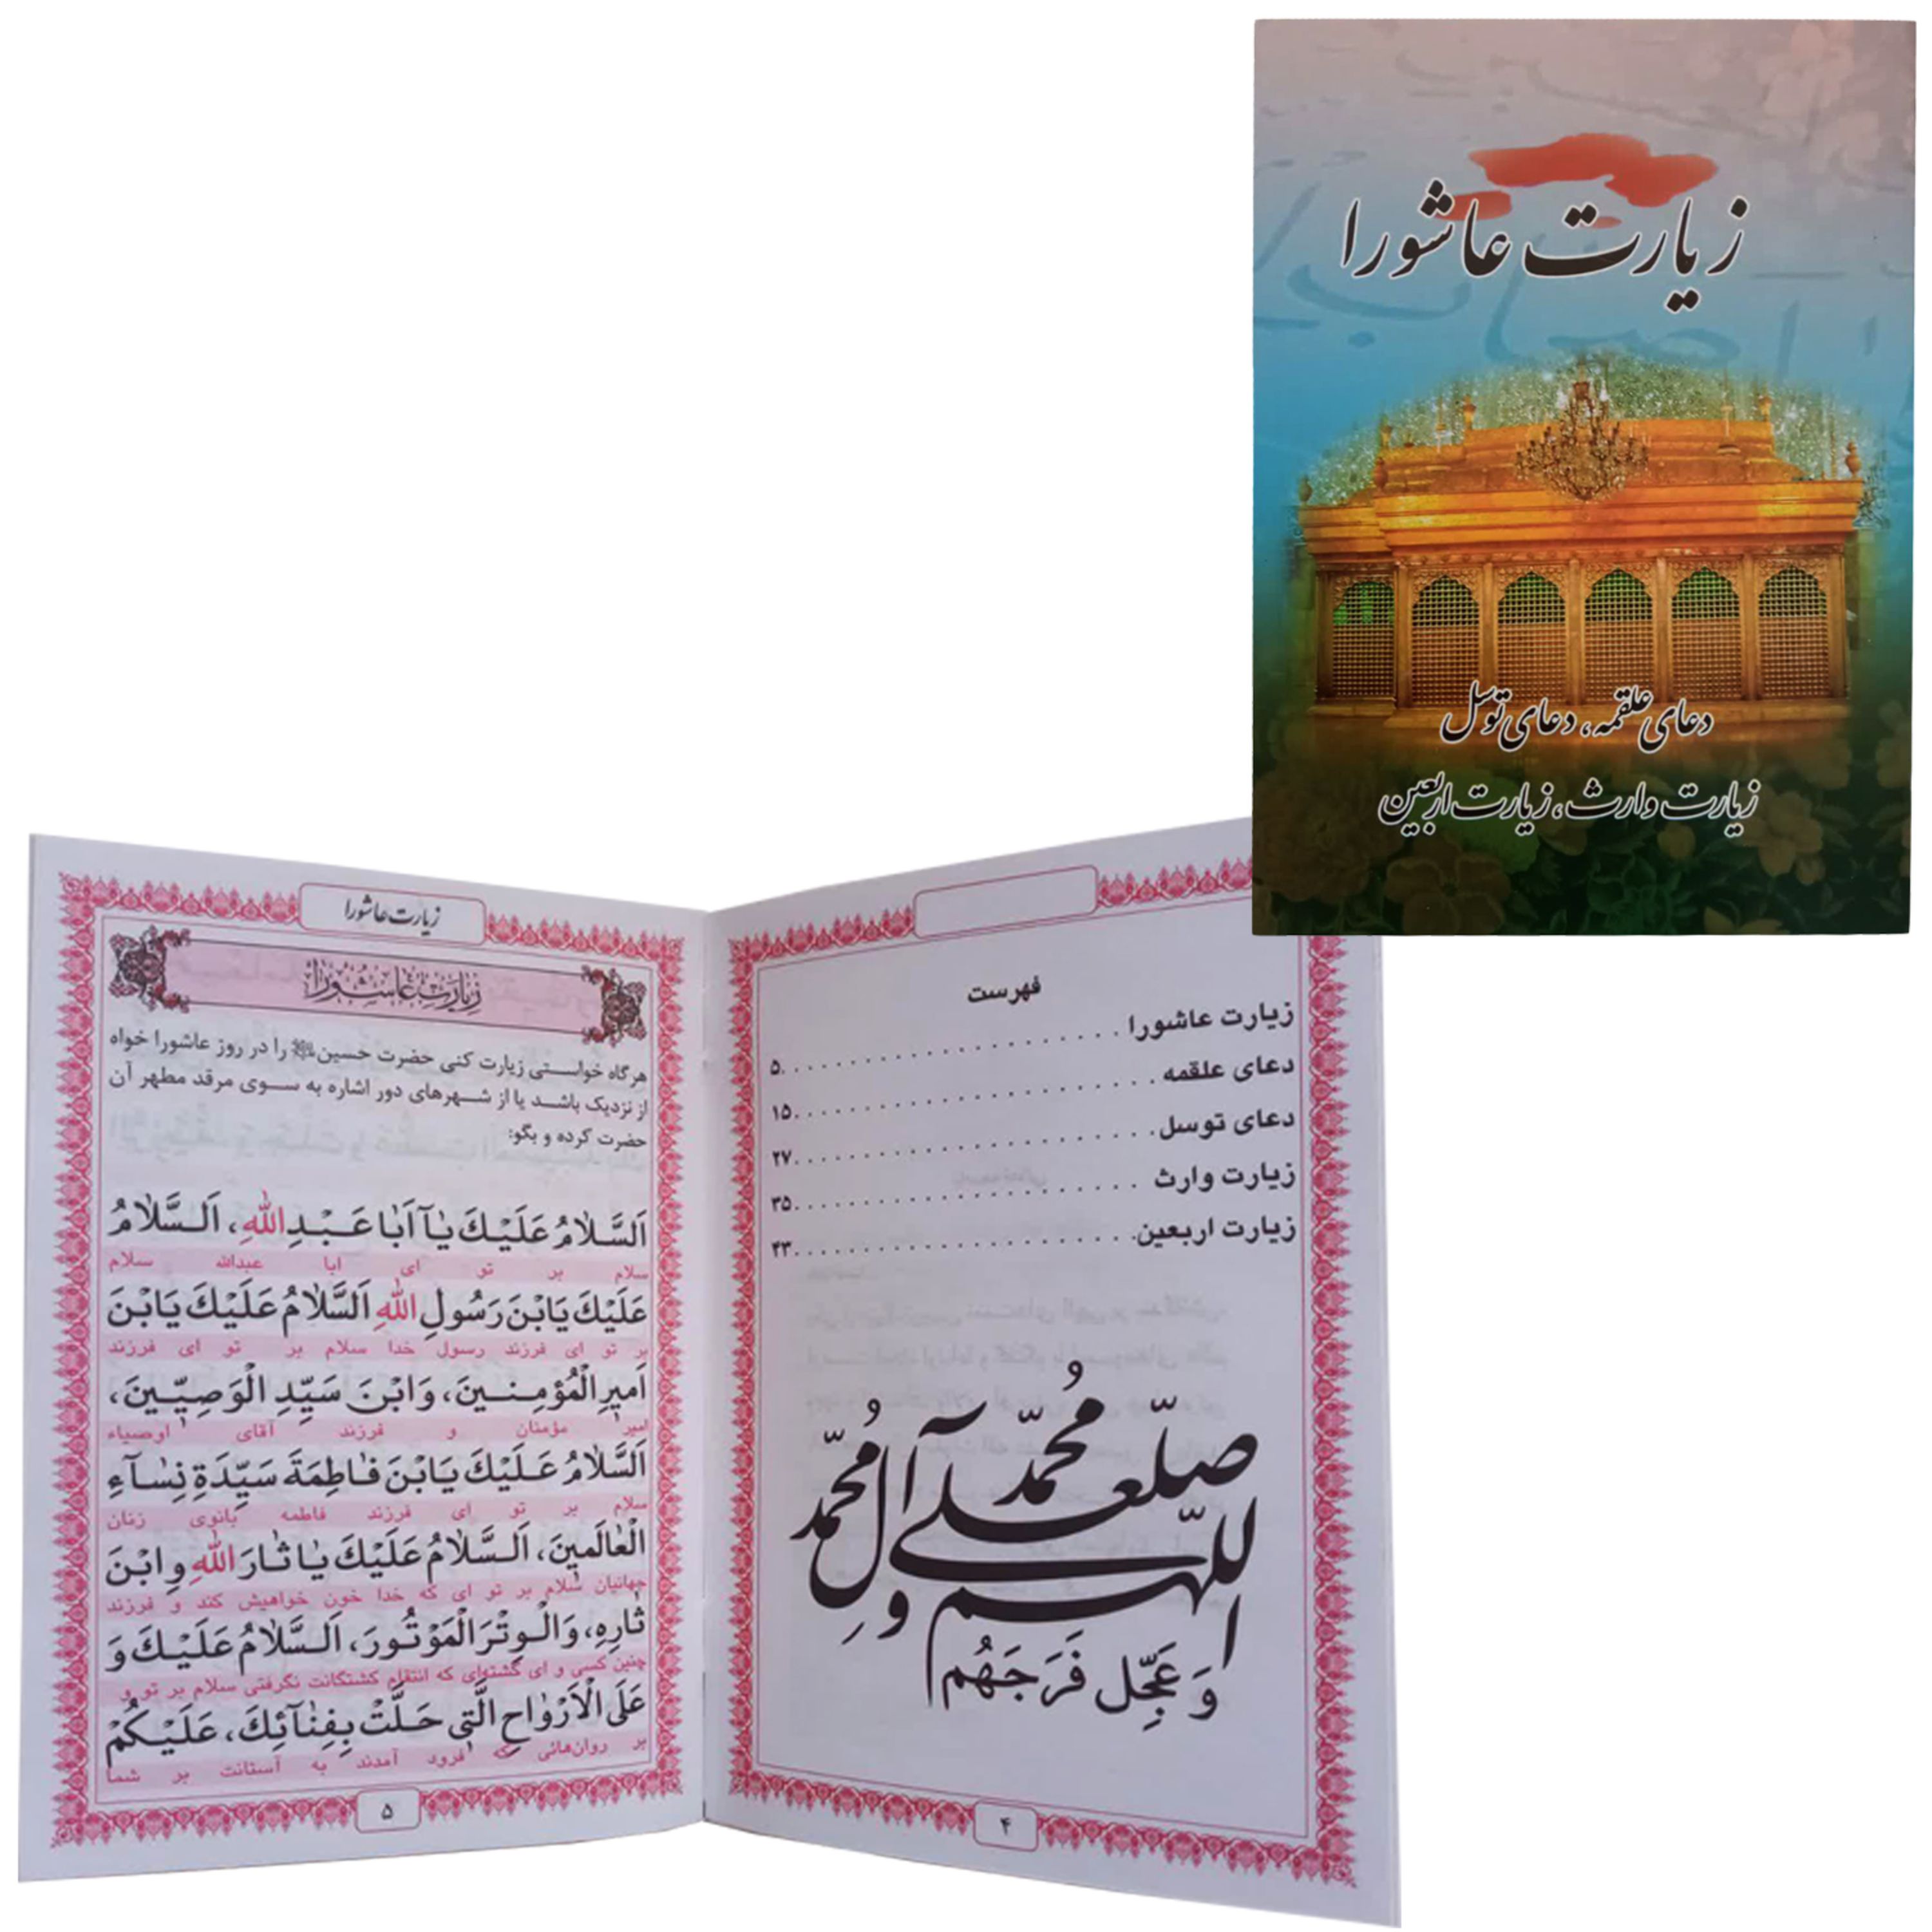 زیارت عاشورا
دعای علقمه، دعای توسل
زیارت وارث، زیارت اربعین
فهرست
زیارت عاشورا . . . . . . . . . . . . . . . . . . . . ۵
دعای علقمه . . . . . . . . . . . . . . . . . . . . ۱۵
دعای توسل . . . . . . . . . . . . . . . . . . . . ۲۷
زیارت وارث . . . . . . . . . . . . . . . . . . . . ۳۵
زیارت اربعین . . . . . . . . . . . . . . . . . . . . ۴۳
اللهم صل علی محمد و آل محمد
و عجل فرجهم
۴
زیارت عاشورا
زیارت عاشورا
هرگاه خواستی زیارت کنی حضرت حسین را در روز عاشورا خواه
از نزدیک باشد یا از شهرهای دور اشاره به سوی مرقد مطهر آن
حضرت کرده و بگو:
اَلسَّلامُ عَلَیْكَ یٰآ اَبٰا عَبْدِ اللهِ، اَلسَّلامُ
سلام بر تو ای ابا عبدالله سلام
عَلَیْكَ یَابْنَ رَسُولِ اللهِ اَلسَّلامُ عَلَیْكَ یَابْنَ
بر تو ای فرزند رسول خدا سلام بر تو ای فرزند
اَمیرِ الْمُؤْمِنینَ، وَابْنَ سَیِّدِ الْوَصِیّینَ،
امیر مؤمنان و فرزند آقای اوصیاء
اَلسَّلامُ عَلَیْكَ یَابْنَ فٰاطِمَةَ سَیِّدَةِ نِسٰآءِ
سلام بر تو ای فرزند فاطمه بانوی زنان
الْعٰالَمینَ، اَلسَّلامُ عَلَیْكَ یٰا ثٰارَ اللهِ وِابْنَ
جهانیان سلام بر تو ای که خدا خون خواهیش کند و فرزند
ثٰارِهِ، وَالْوِتْرَ الْمَوْتُورَ، اَلسَّلامُ عَلَیْكَ وَ
چنین کسی و ای کشته‌ای که انتقام کشتگانت نگرفتی سلام بر تو و
عَلَی الْاَرْوٰاحِ الَّتی حَلَّتْ بِفِنٰآئِكَ، عَلَیْکُمْ
بر روان‌هائی که فرود آمدند به آستانت بر شما
۵